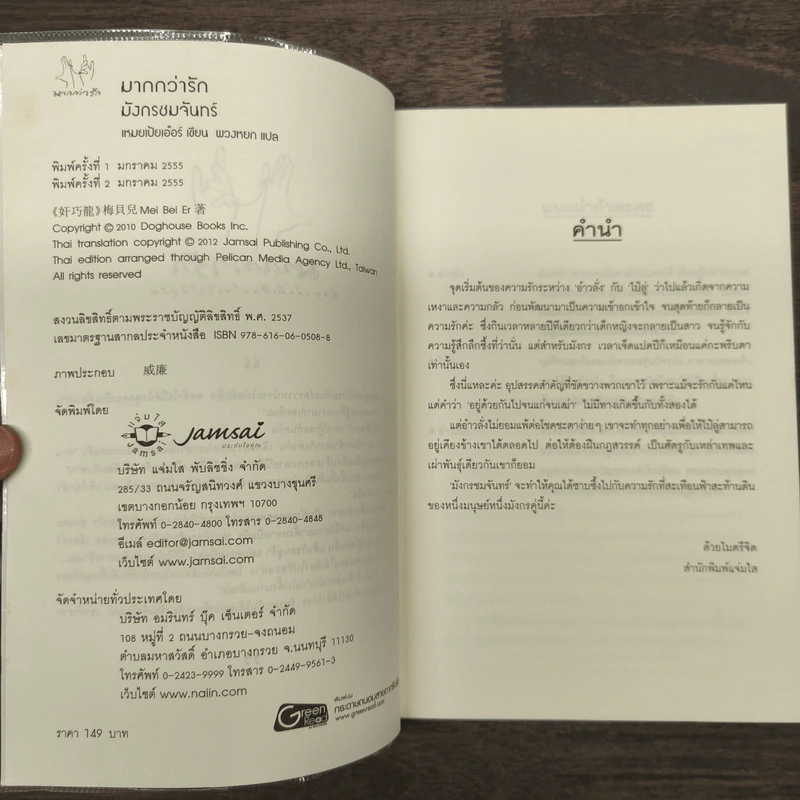 มากกว่ารัก
มากกว่ารัก
มังกรชมจันทร์
เหมยเป้ยเอ๋อร์ เขียน พวงหยก แปล
พิมพ์ครั้งที่ 1 มกราคม 2555
พิมพ์ครั้งที่ 2 มกราคม 2555
《奸巧龍》梅貝兒 Mei Bei Er 著
Copyright © 2010 Doghouse Books Inc.
Thai translation copyright © 2012 Jamsai Publishing Co., Ltd.
Thai edition arranged through Pelican Media Agency Ltd., Taiwan
All rights reserved
สงวนลิขสิทธิ์ตามพระราชบัญญัติลิขสิทธิ์ พ.ศ. 2537
เลขมาตรฐานสากลประจำหนังสือ ISBN 978-616-06-0508-8
ภาพประกอบ 威廉
จัดพิมพ์โดย
แจ่มใส
jamsai
Jamsai
บริษัท แจ่มใส พับลิชชิ่ง จำกัด
285/33 ถนนจรัญสนิทวงศ์ แขวงบางขุนศรี
เขตบางกอกน้อย กรุงเทพฯ 10700
โทรศัพท์ 0-2840-4800 โทรสาร 0-2840-4848
อีเมล์ editor@jamsai.com
เว็บไซต์ www.jamsai.com
จัดจำหน่ายทั่วประเทศโดย
บริษัท อมรินทร์ บุ๊ค เซ็นเตอร์ จำกัด
108 หมู่ที่ 2 ถนนบางกรวย-จงถนอม
ตำบลมหาสวัสดิ์ อำเภอบางกรวย จ.นนทบุรี 11130
โทรศัพท์ 0-2423-9999 โทรสาร 0-2449-9561-3
เว็บไซต์ www.naiin.com
Green Read
พิมพ์บน
กระดาษถนอมสายตากรีนรี้ด
www.greenread.com
ราคา 149 บาท
คำนำ
จุดเริ่มต้นของความรักระหว่าง 'อ๋าวลั่ง' กับ 'ไป๋ลู่' ว่าไปแล้วเกิดจากความ
เหงาและความกลัว ก่อนพัฒนามาเป็นความเข้าอกเข้าใจ จนสุดท้ายก็กลายเป็น
ความรักค่ะ ซึ่งกินเวลาหลายปีทีเดียวกว่าเด็กหญิงจะกลายเป็นสาว จนรู้จักกับ
ความรู้สึกลึกซึ้งที่ว่านั่น แต่สำหรับมังกร เวลาเจ็ดแปดปีก็เหมือนแค่กะพริบตา
เท่านั้นเอง
ซึ่งนี่แหละค่ะ อุปสรรคสำคัญที่ขัดขวางพวกเขาไว้ เพราะแม้จะรักกันแค่ไหน
แต่คำว่า 'อยู่ด้วยกันไปจนแก่จนเฒ่า' ไม่มีทางเกิดขึ้นกับทั้งสองได้
แต่อ๋าวลั่งไม่ยอมแพ้ต่อโชคชะตาง่ายๆ เขาจะทำทุกอย่างเพื่อให้ไป๋ลู่สามารถ
อยู่เคียงข้างเขาได้ตลอดไป ต่อให้ต้องฝืนกฎสวรรค์ เป็นศัตรูกับเหล่าเทพและ
เผ่าพันธุ์เดียวกันเขาก็ยอม
'มังกรชมจันทร์' จะทำให้คุณได้ซาบซึ้งไปกับความรักที่สะเทือนฟ้าสะท้านดิน
ของหนึ่งมนุษย์หนึ่งมังกรคู่นี้ค่ะ
ด้วยไมตรีจิต
สำนักพิมพ์แจ่มใส